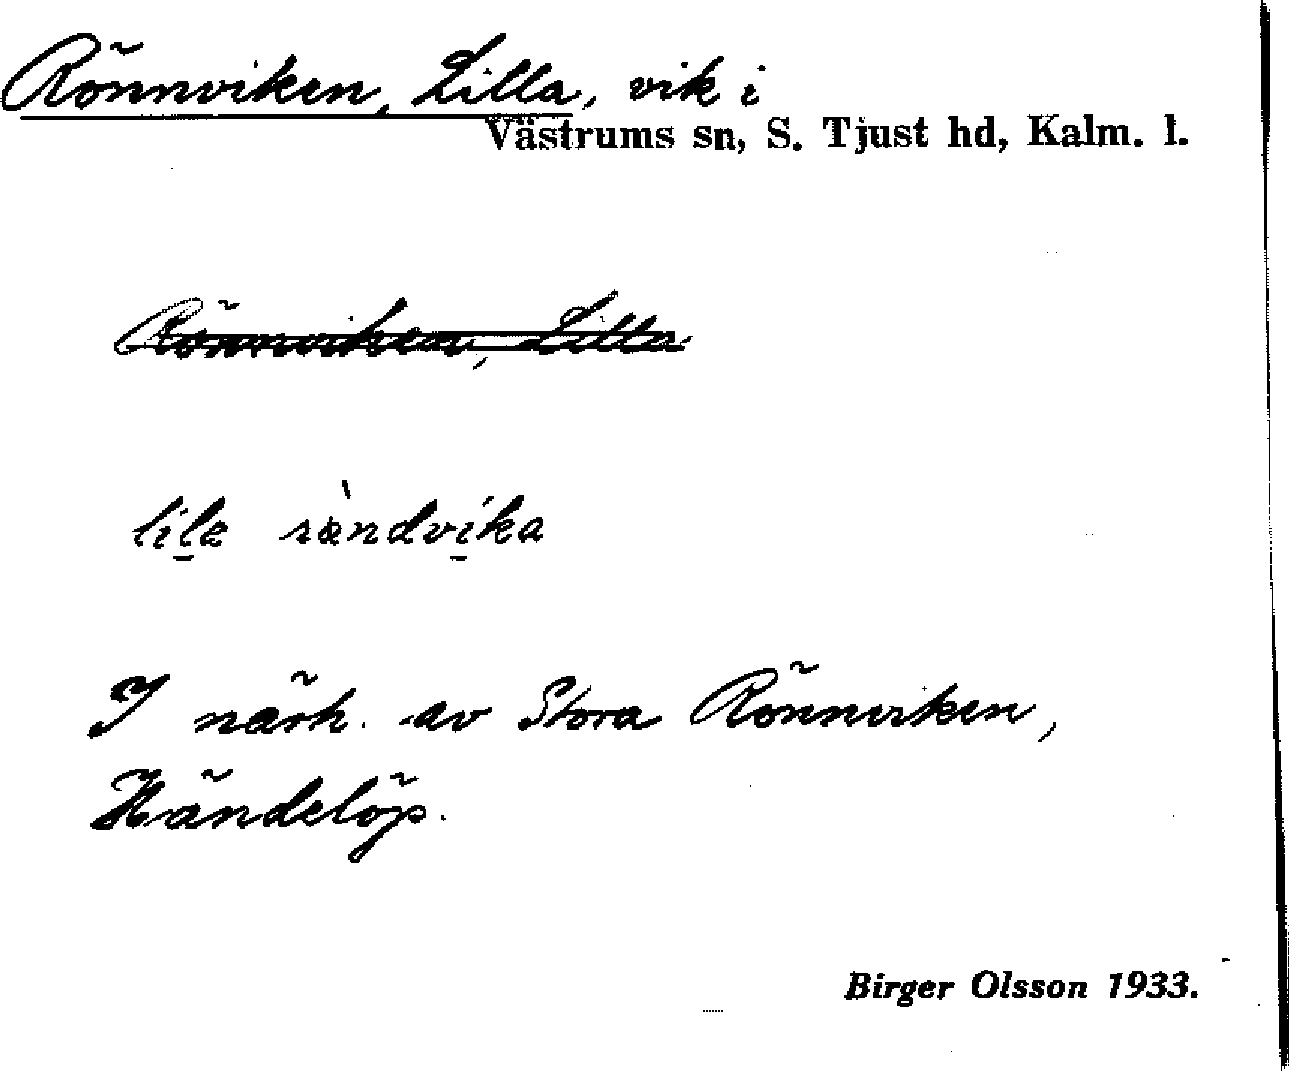 Rönnviken, Lilla, vik i
Västrums sn, S. Tjust hd, Kalm. l.
Rönnviken, Lilla
lilɐ rændvika
I närh. av Stora Rönnviken,
Händelöp.
Birger Olsson 1933.